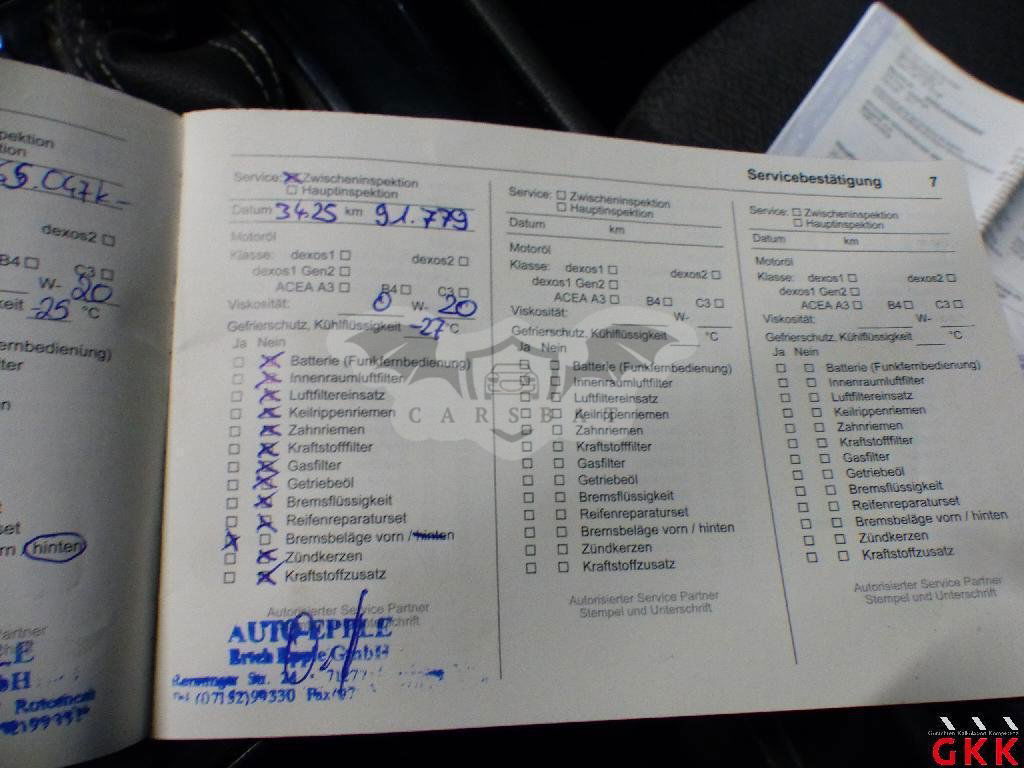 pektion
ion
65.047k-
dexos2 ☐
B4 ☐ C3 ☐
W- 20
keit -25 °C
rnbedienung)
lter
on
set
rn (hinten)
artner
Rutesheim
Servicebestätigung 7
Service: ☒ Zwischeninspektion
☐ Hauptinspektion
Datum 3425 km 91.779
Motoröl
Klasse: dexos1 ☐ dexos2 ☐
dexos1 Gen2 ☐
ACEA A3 ☐ B4 ☐ C3 ☐
Viskosität: 0 W- 20
Gefrierschutz, Kühlflüssigkeit -27 °C
Ja Nein
☐ ☒ Batterie (Funkfernbedienung)
☐ ☒ Innenraumluftfilter
☐ ☒ Luftfiltereinsatz
☐ ☒ Keilrippenriemen
☐ ☒ Zahnriemen
☐ ☒ Kraftstofffilter
☐ ☒ Gasfilter
☐ ☒ Getriebeöl
☐ ☒ Bremsflüssigkeit
☐ ☒ Reifenreparaturset
☒ ☐ Bremsbeläge vorn / hinten
☐ ☒ Zündkerzen
☐ ☒ Kraftstoffzusatz
Autorisierter Service Partner
AUTO-EPPLE
Erich Epple GmbH
Str. 24 - 71277
Tel (07152) 99330 Fax/07
Service: ☐ Zwischeninspektion
☐ Hauptinspektion
Datum km
Motoröl
Klasse: dexos1 ☐ dexos2 ☐
dexos1 Gen2 ☐
ACEA A3 ☐ B4 ☐ C3 ☐
Viskosität: W-
Gefrierschutz, Kühlflüssigkeit °C
Ja Nein
☐ ☐ Batterie (Funkfernbedienung)
☐ ☐ Innenraumluftfilter
☐ ☐ Luftfiltereinsatz
☐ ☐ Keilrippenriemen
☐ ☐ Zahnriemen
☐ ☐ Kraftstofffilter
☐ ☐ Gasfilter
☐ ☐ Getriebeöl
☐ ☐ Bremsflüssigkeit
☐ ☐ Reifenreparaturset
☐ ☐ Bremsbeläge vorn / hinten
☐ ☐ Zündkerzen
☐ ☐ Kraftstoffzusatz
Autorisierter Service Partner
Stempel und Unterschrift
Service: ☐ Zwischeninspektion
☐ Hauptinspektion
Datum km
Motoröl
Klasse: dexos1 ☐ dexos2 ☐
dexos1 Gen2 ☐
ACEA A3 ☐ B4 ☐ C3 ☐
Viskosität: W-
Gefrierschutz, Kühlflüssigkeit °C
Ja Nein
☐ ☐ Batterie (Funkfernbedienung)
☐ ☐ Innenraumluftfilter
☐ ☐ Luftfiltereinsatz
☐ ☐ Keilrippenriemen
☐ ☐ Zahnriemen
☐ ☐ Kraftstofffilter
☐ ☐ Gasfilter
☐ ☐ Getriebeöl
☐ ☐ Bremsflüssigkeit
☐ ☐ Reifenreparaturset
☐ ☐ Bremsbeläge vorn / hinten
☐ ☐ Zündkerzen
☐ ☐ Kraftstoffzusatz
Autorisierter Service Partner
Stempel und Unterschrift
GKK